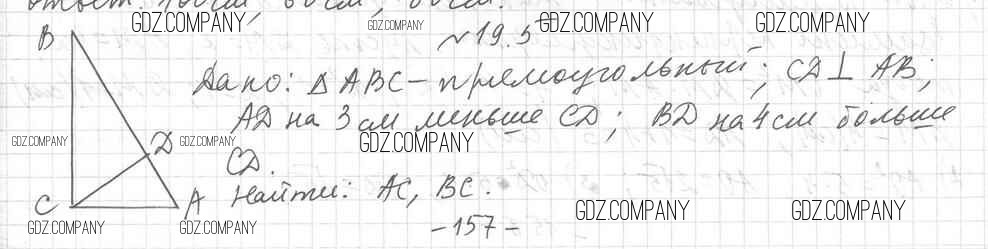 GDZ.COMPANY GDZ.COMPANY GDZ.COMPANY GDZ.COMPANY
№19.5
B
Дано: Δ ABC – прямоугольный; CD ⊥ AB;
AD на 3 см меньше CD; BD на 4 см больше
GDZ.COMPANY D GDZ.COMPANY GDZ.COMPANY
CD.
Найти: AC, BC.
C A
GDZ.COMPANY GDZ.COMPANY
GDZ.COMPANY GDZ.COMPANY
-157-